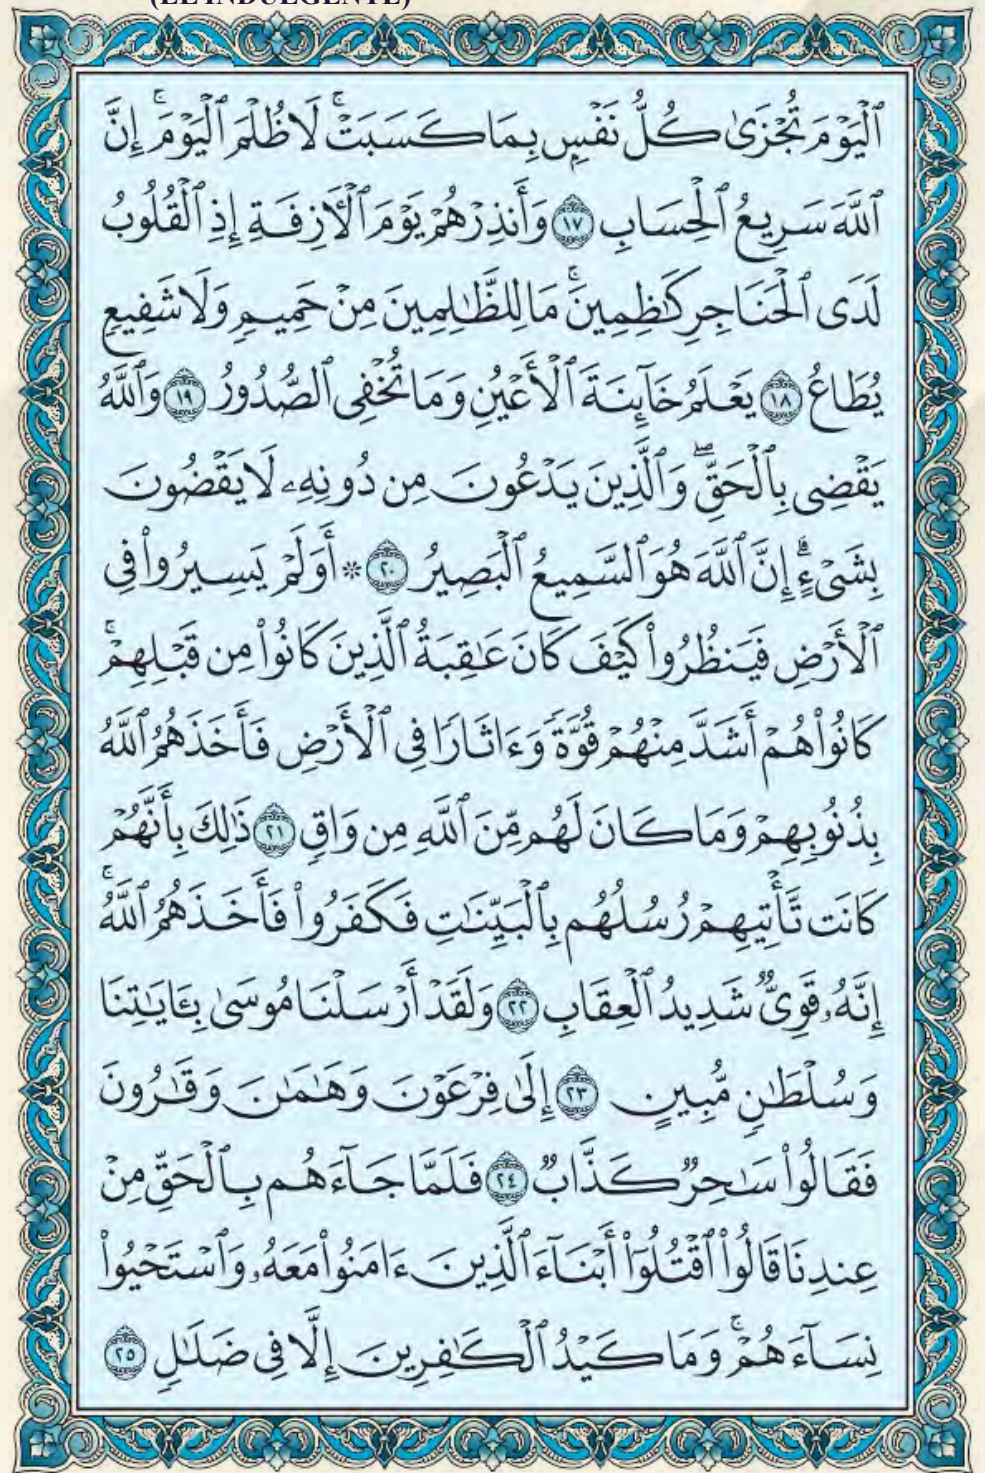 (EL INDULGENTE)
ٱلْيَوْمَ تُجْزَىٰ كُلُّ نَفْسٍۭ بِمَا كَسَبَتْ ۚ لَا ظُلْمَ ٱلْيَوْمَ ۚ إِنَّ
ٱللَّهَ سَرِيعُ ٱلْحِسَابِ ١٧ وَأَنذِرْهُمْ يَوْمَ ٱلْـَٔازِفَةِ إِذِ ٱلْقُلُوبُ
لَدَى ٱلْحَنَاجِرِ كَـٰظِمِينَ ۚ مَا لِلظَّـٰلِمِينَ مِنْ حَمِيمٍ وَلَا شَفِيعٍ
يُطَاعُ ١٨ يَعْلَمُ خَآئِنَةَ ٱلْأَعْيُنِ وَمَا تُخْفِى ٱلصُّدُورُ ١٩ وَٱللَّهُ
يَقْضِى بِٱلْحَقِّ ۖ وَٱلَّذِينَ يَدْعُونَ مِن دُونِهِۦ لَا يَقْضُونَ
بِشَىْءٍ ۗ إِنَّ ٱللَّهَ هُوَ ٱلسَّمِيعُ ٱلْبَصِيرُ ٢٠ * أَوَلَمْ يَسِيرُوا۟ فِى
ٱلْأَرْضِ فَيَنظُرُوا۟ كَيْفَ كَانَ عَـٰقِبَةُ ٱلَّذِينَ كَانُوا۟ مِن قَبْلِهِمْ ۚ
كَانُوا۟ هُمْ أَشَدَّ مِنْهُمْ قُوَّةً وَءَاثَارًا فِى ٱلْأَرْضِ فَأَخَذَهُمُ ٱللَّهُ
بِذُنُوبِهِمْ وَمَا كَانَ لَهُم مِّنَ ٱللَّهِ مِن وَاقٍ ٢١ ذَٰلِكَ بِأَنَّهُمْ
كَانَت تَّأْتِيهِمْ رُسُلُهُم بِٱلْبَيِّنَـٰتِ فَكَفَرُوا۟ فَأَخَذَهُمُ ٱللَّهُ ۚ
إِنَّهُۥ قَوِىٌّ شَدِيدُ ٱلْعِقَابِ ٢٢ وَلَقَدْ أَرْسَلْنَا مُوسَىٰ بِـَٔايَـٰتِنَا
وَسُلْطَـٰنٍ مُّبِينٍ ٢٣ إِلَىٰ فِرْعَوْنَ وَهَـٰمَـٰنَ وَقَـٰرُونَ
فَقَالُوا۟ سَـٰحِرٌ كَذَّابٌ ٢٤ فَلَمَّا جَآءَهُم بِٱلْحَقِّ مِنْ
عِندِنَا قَالُوا۟ ٱقْتُلُوٓا۟ أَبْنَآءَ ٱلَّذِينَ ءَامَنُوا۟ مَعَهُۥ وَٱسْتَحْيُوا۟
نِسَآءَهُمْ ۚ وَمَا كَيْدُ ٱلْكَـٰفِرِينَ إِلَّا فِى ضَلَـٰلٍ ٢٥